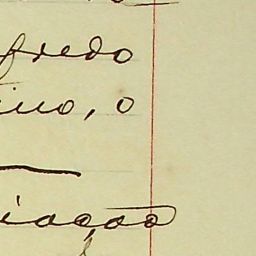 fredo
ino, o
iação